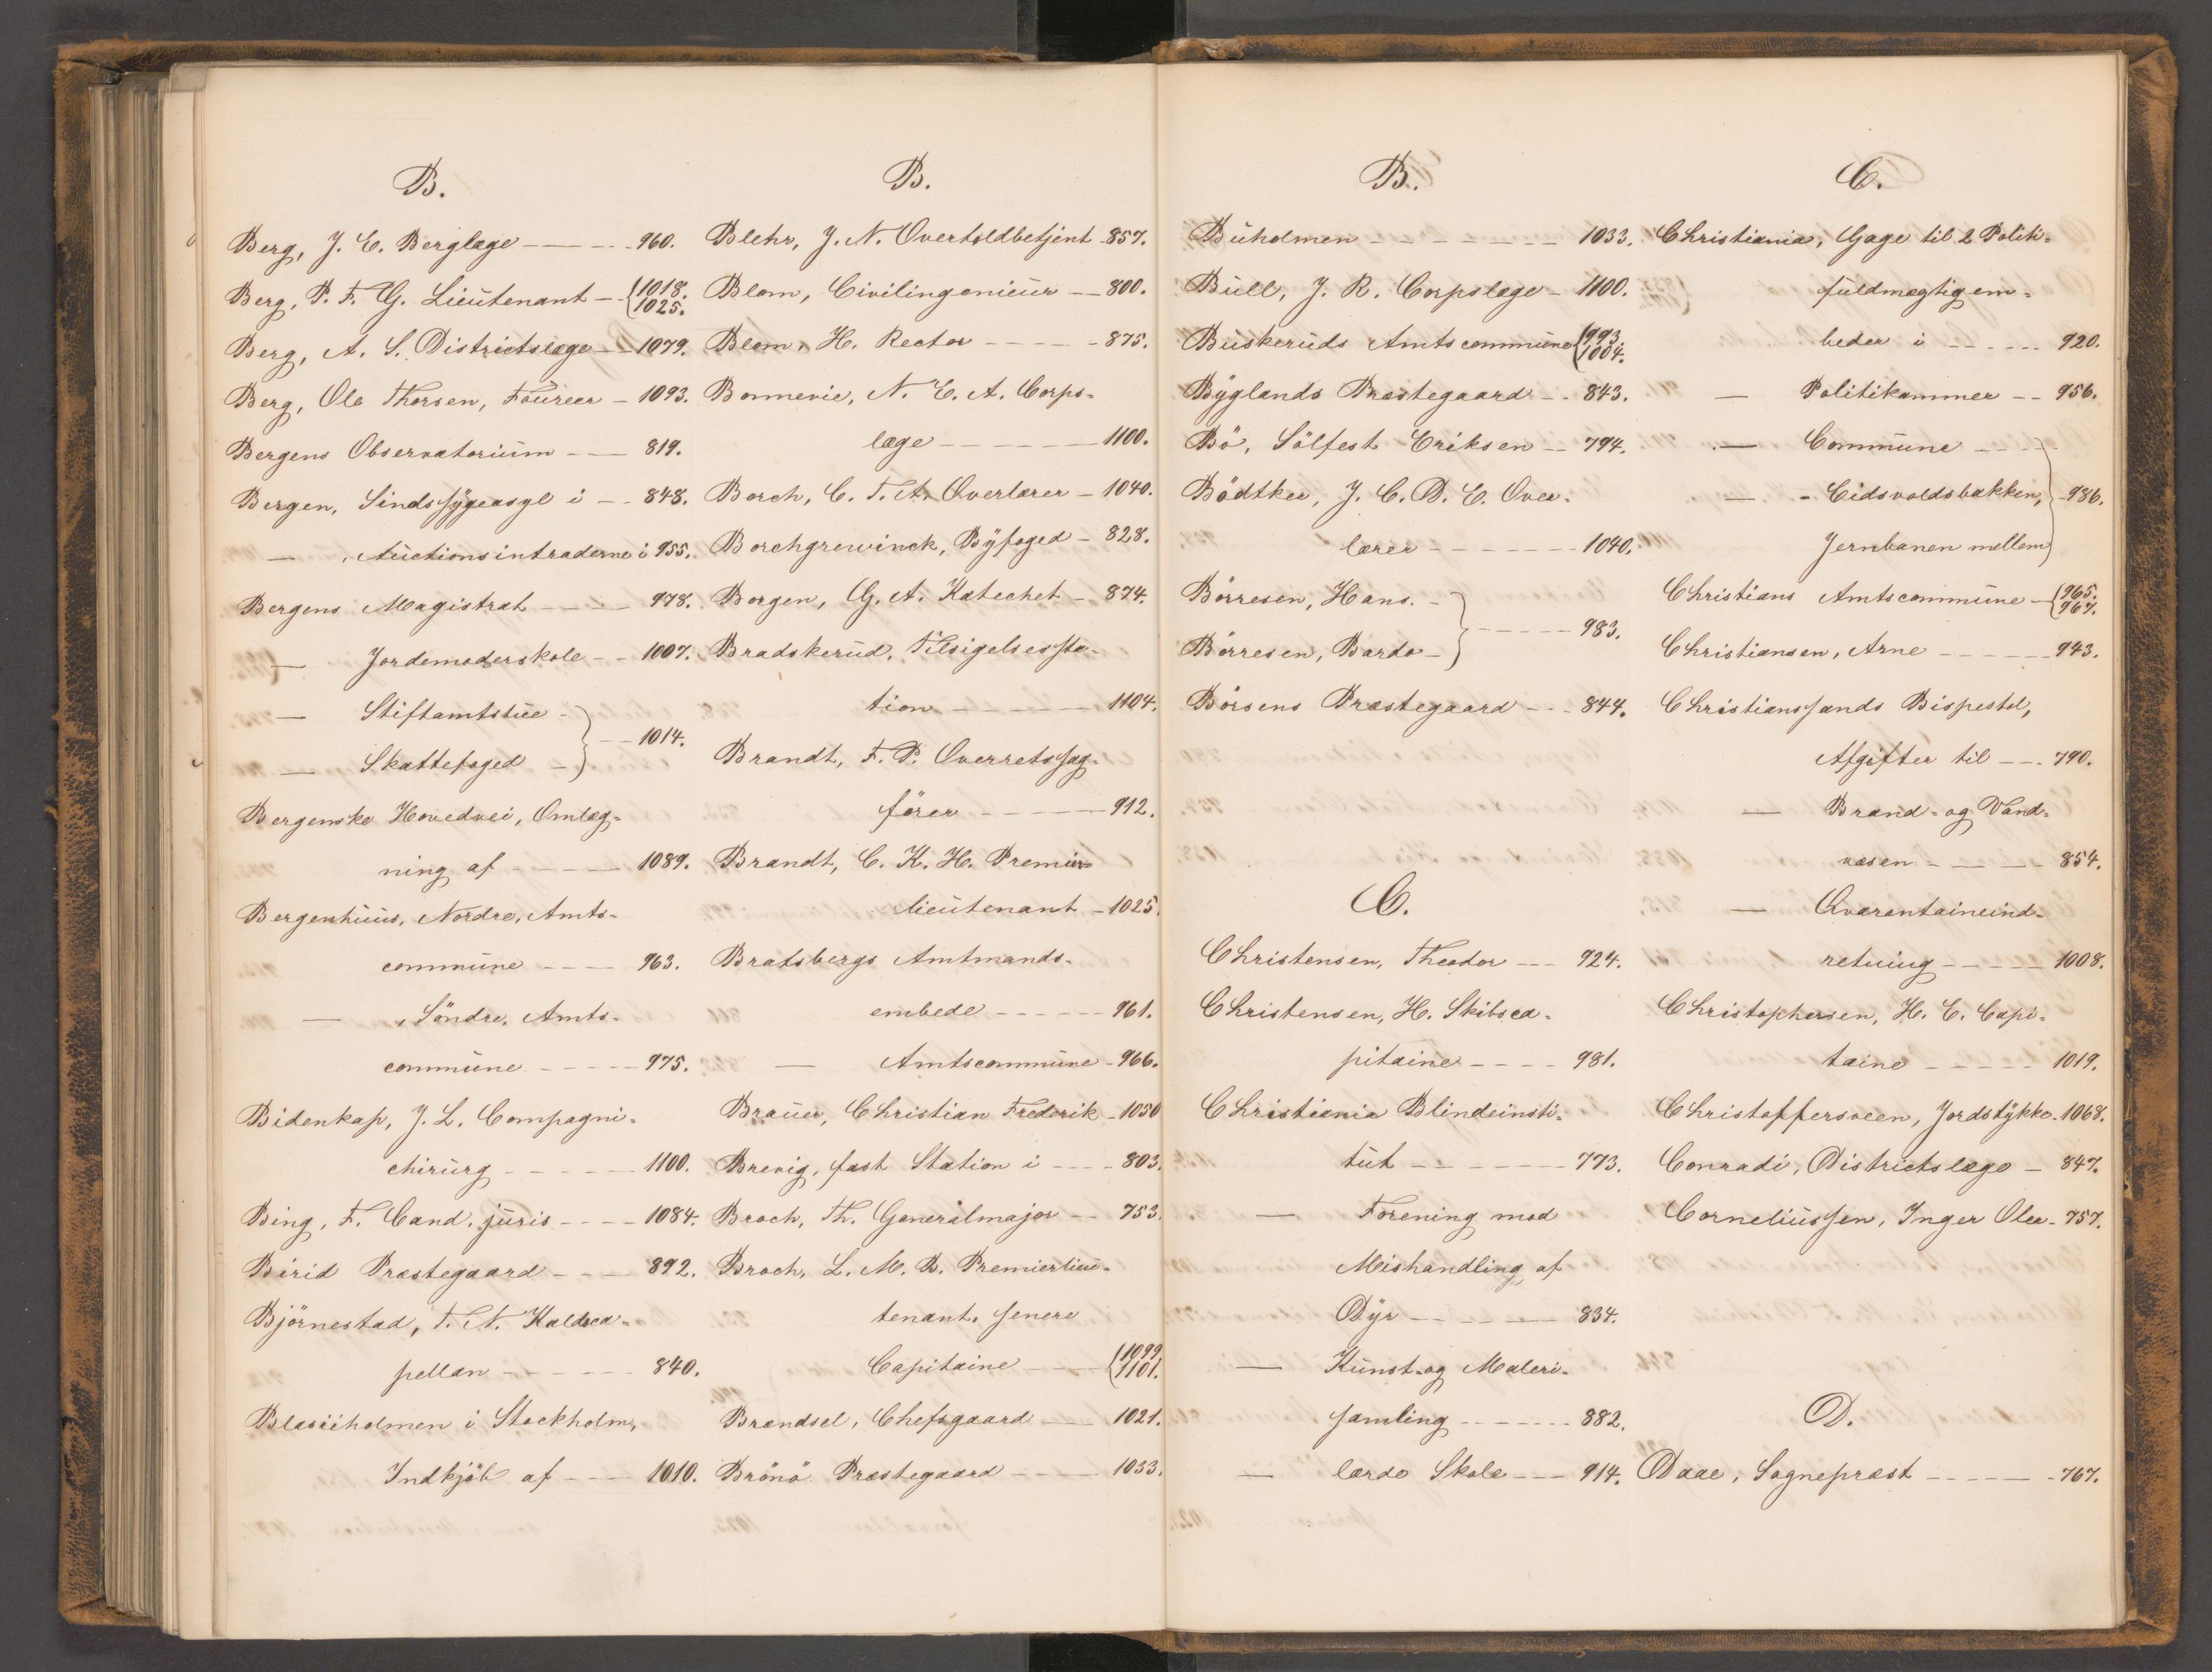 B.
Berg, J. E. Berglæge - - - - 960.
Berg, P. F. G. Lieutenant - - {1018. 1025.
Berg, A. S. Districtslæge - - 1079.
Berg, Ole Thorsen, Foureer - 1093.
Bergens Observatorium - - - 819.
Bergen, Sindssygeasyl i - - 848.
— , Auctionsintraderne i 955.
Bergens Magistrat - - - - 978.
— Jordemoderskole - - 1007.
— Stiftamtstue - }
— Skattefoged - } - - 1014.
Bergenske Hovedvei, Omlæg-
ning af - - - - 1089.
Bergenhuus, Nordre, Amts-
commune - - - - 963.
— , Söndre, Amts-
commune - - - - - 975.
Bidenkap, J. L. Compagni-
chirurg - - - - - 1100.
Bing, F. Cand. juris - - - - 1084.
Birid Præstegaard - - - - 892.
Björnestad, T. N. Kaldsca-
pellan - - - - - - 840.
Blasiiholmen i Stockholm,
Indkjöb af - - - 1010.
B.
Blehr, J. N. Overtoldbetjent - 857.
Blom, Civilingenieur - - 800.
Blom, H. Rector - - - - - 875.
Bonnevie, N. E. A. Corps-
læge - - - - - - 1100.
Borch, C. F. A. Overlærer - 1040.
Borchgrewinck, Byfoged - 828.
Borgen, G. A. Katechet - 874.
Bradskerud, Tilsigelsessta-
tion - - - - - - 1104.
Brandt, F. P. Overretssag-
förer - - - - - 912.
Brandt, C. K. H. Premier-
lieutenant - 1025.
Bratsbergs Amtmands-
embede - - - - - 961.
— Amtscommune - 966.
Brauer, Christian Frederik - 1030
Brevig, fast Station i - - - - 803.
Broch, Th. Generalmajor - - 753.
Broch, L. M. B. Premierlieu-
tenant, senere
Capitaine - - - {1099. 1101.
Brændsel, Chefsgaard - - - 1021.
Brönö Præstegaard - - - - 1033.
B.
Buholmen - - - - - - - - 1033.
Bull, J. R. Corpslæge - 1100.
Buskeruds Amtscommune {993. 1004.
Byglands Præstegaard - - 843.
Bö, Sölfest Eriksen - - 794.
Bödtker, J. C. D. E. Over-
lærer - - - - - - - 1040.
Börresen, Hans. - }
Börresen, Bardo - } - - - - - 983.
Börsens Præstegaard - - - 844.
C.
Christensen, Theodor - - - 924.
Christensen, H. Skibsca-
pitaine - - - - 981.
Christiania Blindeinsti-
tut - - - - - - - 773.
— Forening mod
Mishandling af
Dyr - - - - - - 834.
— Kunst- og Maleri-
samling - - - - - - - 882.
— lærde Skole - - - 914.
C.
Christiania, Gage til 2 Politi-
fuldmægtigem-
beder i - - - - - - 920.
— Politikammer - - 956.
— Commune - - - - }
— - Eidsvoldsbakken, } - 986.
Jernbanen mellem }
Christians Amtscommune - {965. 967.
Christiansen, Arne - - - - - - 943.
Christianssands Bispestol,
Afgifter til - - - 790.
— Brand- og Vand-
væsen - - - - - 854.
— Qvarantaineind-
retning - - - - - 1008.
Christophersen, H. C. Capi-
taine - - - - - 1019.
Christoffersveen, Jordstykke - 1068.
Conradi, Districtslæge - 847.
Corneliussen, Inger Olea - 757.
D.
Daae, Sognepræst - - - - - - 767.